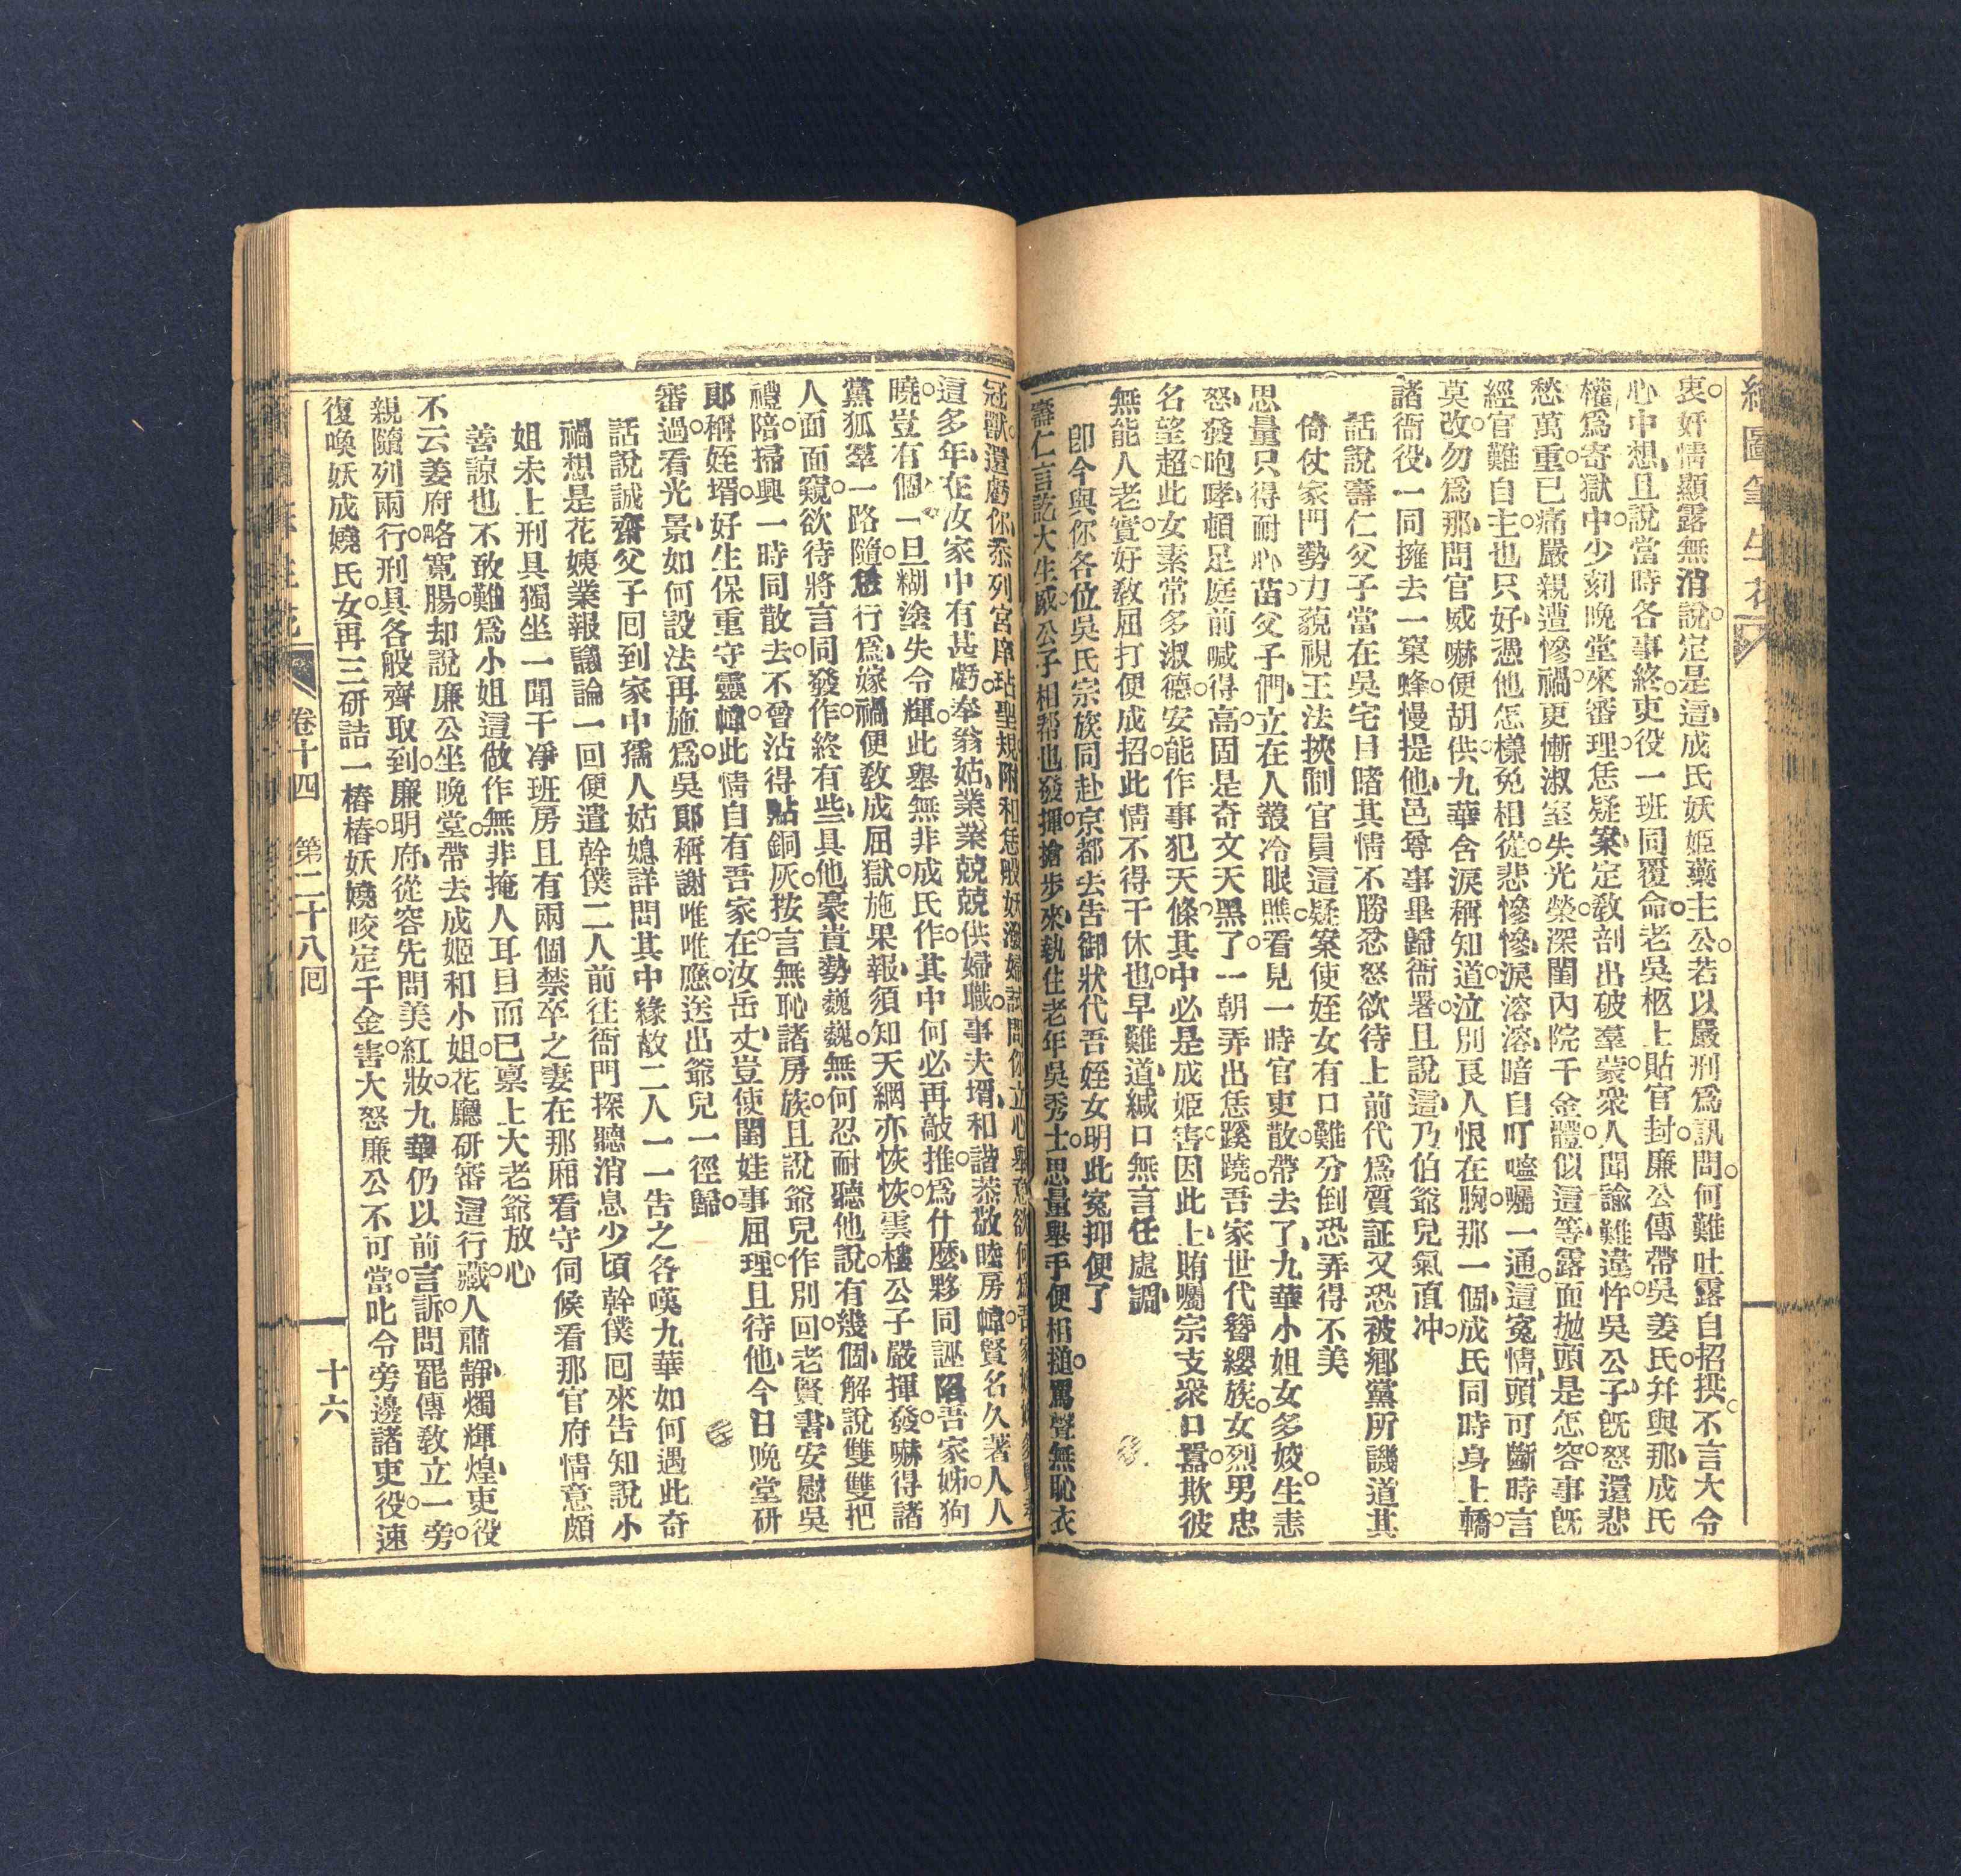 繪圖筆生花
衷。奸情顯露無消說。定是這成氏妖姬藥主公。若以嚴刑爲訊問。何難吐露自招撰。不言大令
心中想。且說當時各事終。吏役一班同覆命。老吳柩上貼官封。廉公傳帶吳姜氏。幷與那成氏
權爲寄獄中。少刻晚堂來審理。恁疑案定敎剖出破羣蒙。衆人聞諭難違忤。吳公子旣怒還悲
愁萬重。已痛嚴親遭慘禍。更慚淑室失光榮。深閨內院千金體。似這等露面拋頭是怎容。事旣
經官難自主。也只好憑他怎樣免相從。悲慘慘。淚溶溶。暗自叮嚀囑一通。這冤情頭可斷時言
莫改。勿爲那問官威嚇便胡供。九華含淚稱知道。泣別良人恨在胸。那一個成氏同時身上轎。
諸衙役一同擁去一窠蜂。慢提他邑尊事畢歸衙署。且說這乃伯爺兒氣直冲。
話說壽仁父子當在吳宅目睹其情不勝忿怒欲待上前代爲質証又恐被鄉黨所譏道其
倚仗家門勢力藐視王法挾制官員這疑案使姪女有口難分倒恐弄得不美
思量只得耐心苗。父子們立在人叢冷眼瞧。看見一時官吏散。帶去了九華小姐女多姣。生恚
怒。發咆哮。頓足庭前喊得高。固是奇文天黑了。一朝弄出恁蹊蹺。吾家世代簪纓族。女烈男忠
名望超。此女素常多淑德。安能作事犯天條。其中必是成姬害。因此上賄囑宗支衆口囂。欺彼
無能人老實。好敎屈打便成招。此情不得干休也。早難道緘口無言任處調。
卽今與你各位吳氏宗族同赴京都去告御狀代吾姪女明此冤抑便了
壽仁言訖大生威。公子相幫也發揮。搶步來執住老年吳秀士。思量舉手便相搥。罵聲無恥衣
冠獸。還虧你忝列宮庠玷聖規。附和恁般妖潑婦。試問你立心舉意欲何爲。
這多年在汝家中有甚虧。奉翁姑業業兢兢供婦職。事夫壻和諧恭敬睦房幃。賢名久著人人
曉。豈有個一旦糊塗失令輝。此舉無非成氏作。其中何必再敲推。爲什麼夥同誣陷吾家姊。狗
黨狐羣一路隨。恁行爲嫁禍便敎成屈獄。施果報須知天網亦恢恢。雲樓公子嚴揮發。嚇得諸
人面面窺。欲待將言同發作。終有些具他豪貴勢巍巍。無何忍耐聽他說。有幾個解說雙雙把
禮陪。掃興一時同散去。不曾沾得點銅灰。按言無恥諸房族。且說爺兒作別回。老賢書安慰吳
郎稱姪壻。好生保重守靈幃。此情自有吾家在。汝岳丈豈使閨娃事屈理。且待他今日晚堂研
審過。看光景如何設法再施爲。吳郎稱謝唯唯應。送出爺兒一徑歸。
話說誠齋父子囘到家中孺人姑媳詳問其中緣故二人一一告之各嘆九華如何遇此奇
禍想是花姨業報議論一回便遣幹僕二人前往衙門探聽消息少頃幹僕囘來告知說小
姐未上刑具獨坐一聞干凈班房且有兩個禁卒之妻在那廂看守伺候看那官府情意頗
善諒也不敢難爲小姐這做作無非掩人耳目而已稟上大老爺放心
不云姜府略寬腸。却說廉公坐晚堂。帶去成姬和小姐。花廳研審這行藏。人肅靜。燭輝煌。吏役
親隨列兩行。刑具各般齊取到。廉明府從容先問美紅妝。九華仍以前言訴。問罷傳敎立一旁。
復喚妖成嬈氏女。再三研詰一樁樁。妖嬈咬定千金害。大怒廉公不可當。叱令旁邊諸吏役。速
卷十四 第二十八囘
十六